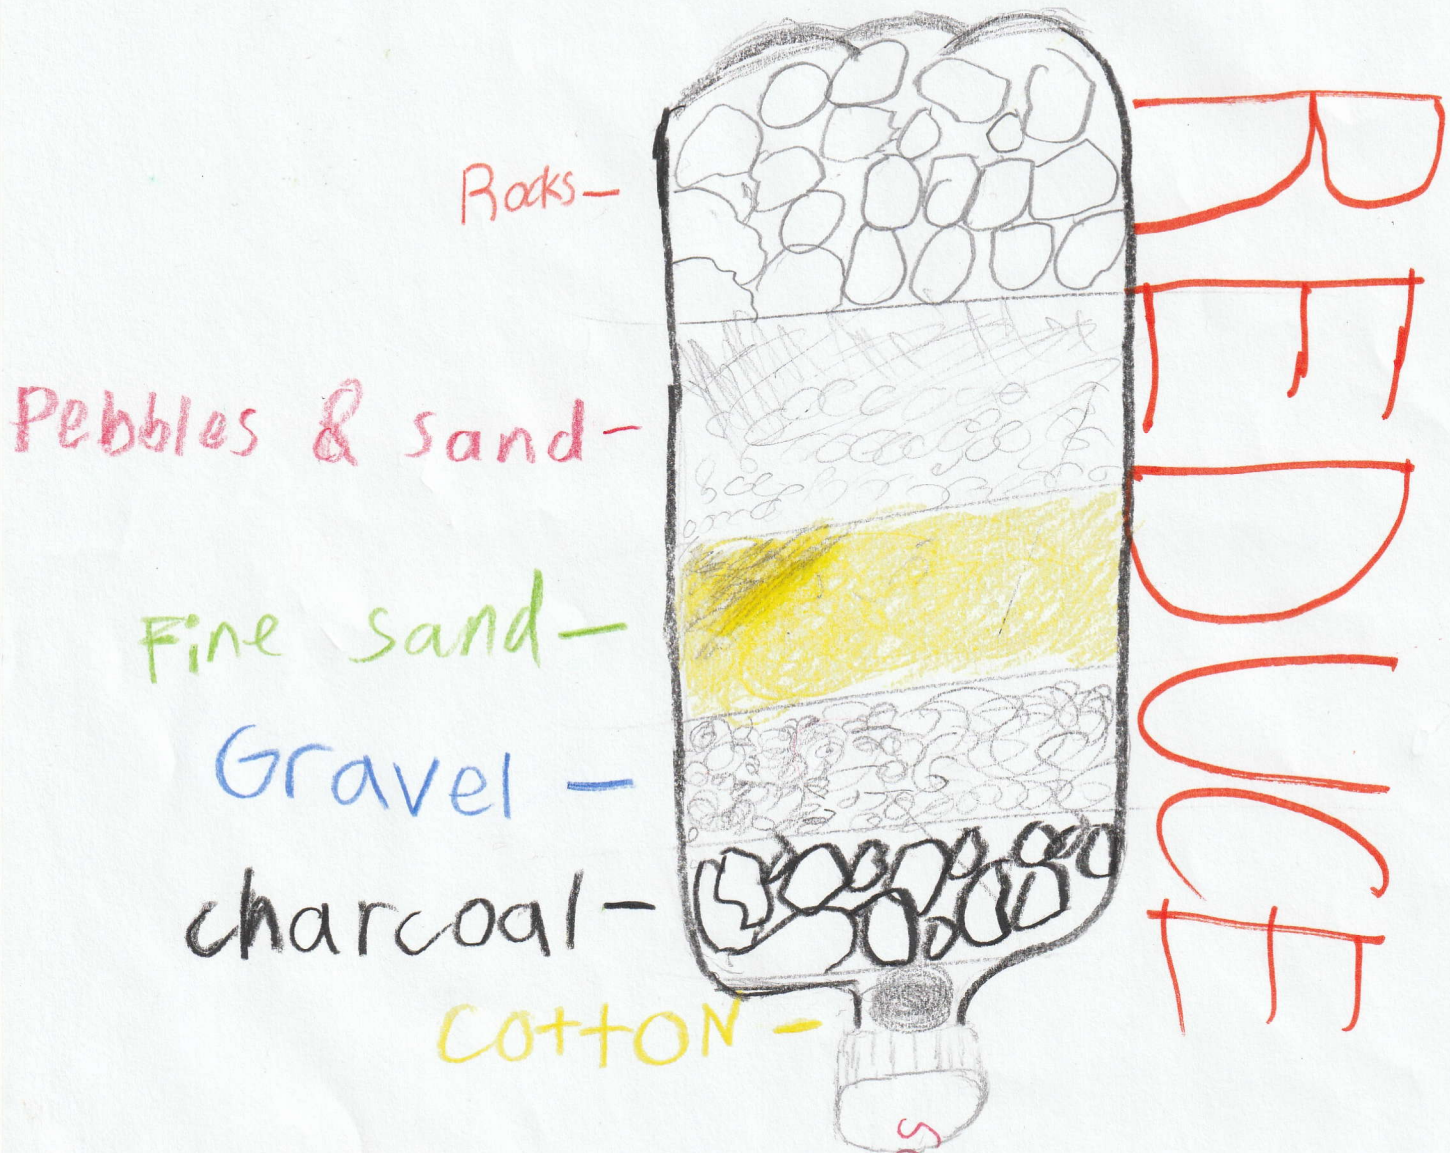 Rocks
Pebbles & sand
Fine sand
Gravel
charcoal
COTTON
REDUCE